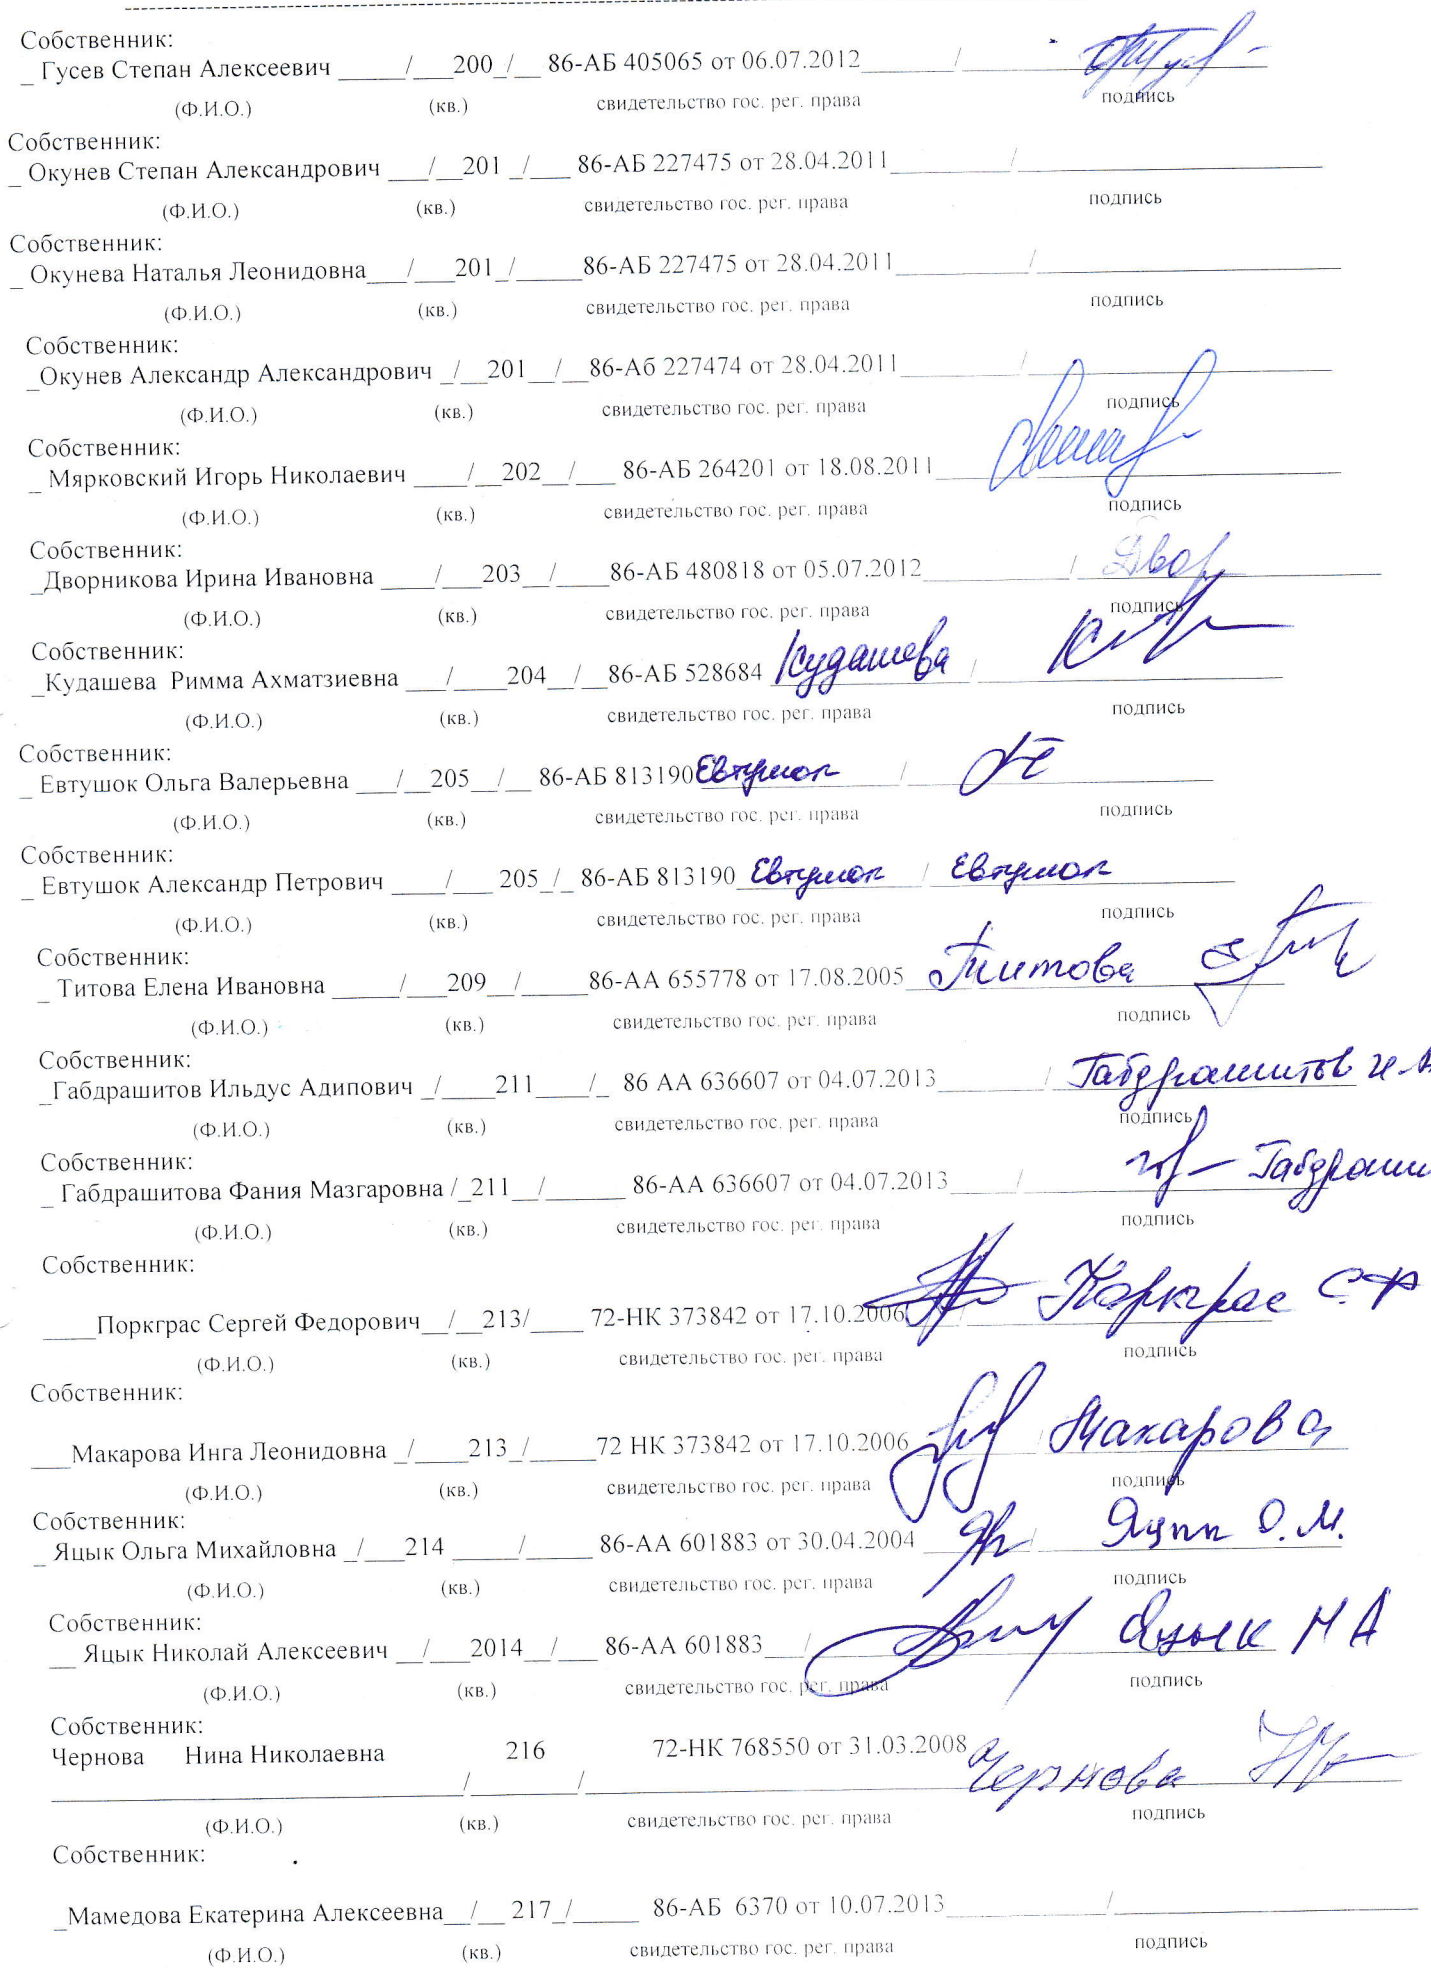 Собственник:
_ Гусев Степан Алексеевич _____/___200_/__ 86-АБ 405065 от 06.07.2012_______/
(Ф.И.О.) (кв.) свидетельство гос. рег. права подпись
Собственник:
_ Окунев Степан Александрович ___/__201 _/___ 86-АБ 227475 от 28.04.2011_________/
(Ф.И.О.) (кв.) свидетельство гос. рег. права подпись
Собственник:
_ Окунева Наталья Леонидовна___/___201_/_____86-АБ 227475 от 28.04.2011__________/
(Ф.И.О.) (кв.) свидетельство гос. рег. права подпись
Собственник:
_Окунев Александр Александрович _/__201__/__86-Аб 227474 от 28.04.2011_________/
(Ф.И.О.) (кв.) свидетельство гос. рег. права подпись
Собственник:
_ Мярковский Игорь Николаевич ____/__202__/___ 86-АБ 264201 от 18.08.2011
(Ф.И.О.) (кв.) свидетельство гос. рег. права подпись
Собственник:
_Дворникова Ирина Ивановна ____/___203__/____86-АБ 480818 от 05.07.2012___________/ Двор
(Ф.И.О.) (кв.) свидетельство гос. рег. права подпись
Собственник:
_Кудашева Римма Ахматзиевна ___/____204__/__86-АБ 528684 Кудашева /
(Ф.И.О.) (кв.) свидетельство гос. рег. права подпись
Собственник:
_ Евтушок Ольга Валерьевна ___/__205__/__ 86-АБ 813190 Евтушок /
(Ф.И.О.) (кв.) свидетельство гос. рег. права подпись
Собственник:
_ Евтушок Александр Петрович ____/___ 205_/_ 86-АБ 813190 Евтушок / Евтушок
(Ф.И.О.) (кв.) свидетельство гос. рег. права подпись
Собственник:
_ Титова Елена Ивановна _____/___209__/_____86-АА 655778 от 17.08.2005 Титова
(Ф.И.О.) (кв.) свидетельство гос. рег. права подпись
Собственник:
_Габдрашитов Ильдус Адипович _/____211____/_ 86 АА 636607 от 04.07.2013________/ Габдрашитов И.А
(Ф.И.О.) (кв.) свидетельство гос. рег. права подпись
Собственник:
_ Габдрашитова Фания Мазгаровна /_211__/______ 86-АА 636607 от 04.07.2013_____/ Габдраши
(Ф.И.О.) (кв.) свидетельство гос. рег. права подпись
Собственник:
____Поркграс Сергей Федорович__/__213/____ 72-НК 373842 от 17.10.2006 Поркграс С.Ф
(Ф.И.О.) (кв.) свидетельство гос. рег. права подпись
Собственник:
___Макарова Инга Леонидовна _/____213_/_____72 НК 373842 от 17.10.2006 Макарова
(Ф.И.О.) (кв.) свидетельство гос. рег. права подпись
Собственник:
_ Яцык Ольга Михайловна _/___214 _____/_____ 86-АА 601883 от 30.04.2004 / Яцык О.М.
(Ф.И.О.) (кв.) свидетельство гос. рег. права подпись
Собственник:
__ Яцык Николай Алексеевич __/___2014__/___ 86-АА 601883___/ Яцык Н А
(Ф.И.О.) (кв.) свидетельство гос. рег. права подпись
Собственник:
Чернова Нина Николаевна 216 72-НК 768550 от 31.03.2008 Чернова
(Ф.И.О.) (кв.) свидетельство гос. рег. права подпись
Собственник:
_Мамедова Екатерина Алексеевна__/__ 217_/_____ 86-АБ 6370 от 10.07.2013____________/
(Ф.И.О.) (кв.) свидетельство гос. рег. права подпись